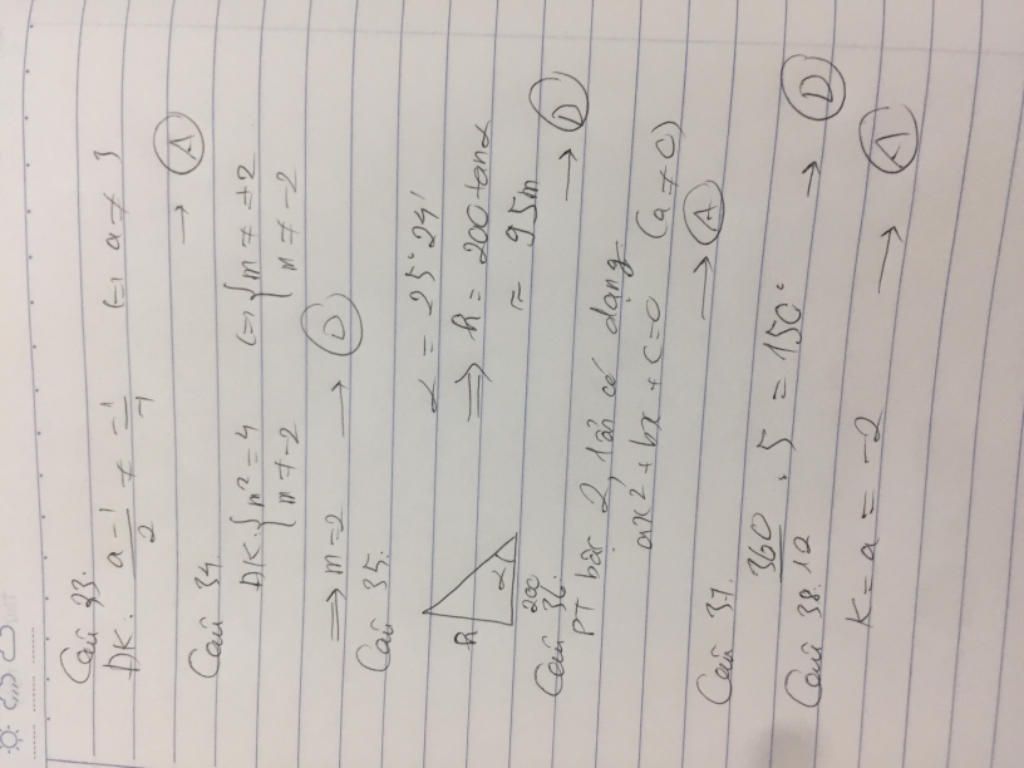 Câu 33.
ĐK: (a-1)/2 ≠ 1/1 (=) a ≠ 3
→ (A)
Câu 34.
ĐK: { m² = 4 (=) { m ≠ ±2
{ m ≠ -2 { m ≠ -2
⇒ m = 2 → (D)
Câu 35.
α = 25° 24'
h α ⇒ h = 200.tanα
200 ≈ 95m
Câu 36. → (D)
PT bậc 2 1 ẩn có dạng
ax² + bx + c = 0 (a ≠ 0)
→ (A)
Câu 37.
360/12 . 5 = 150° → (D)
Câu 38.
K = a = -2 → (A)